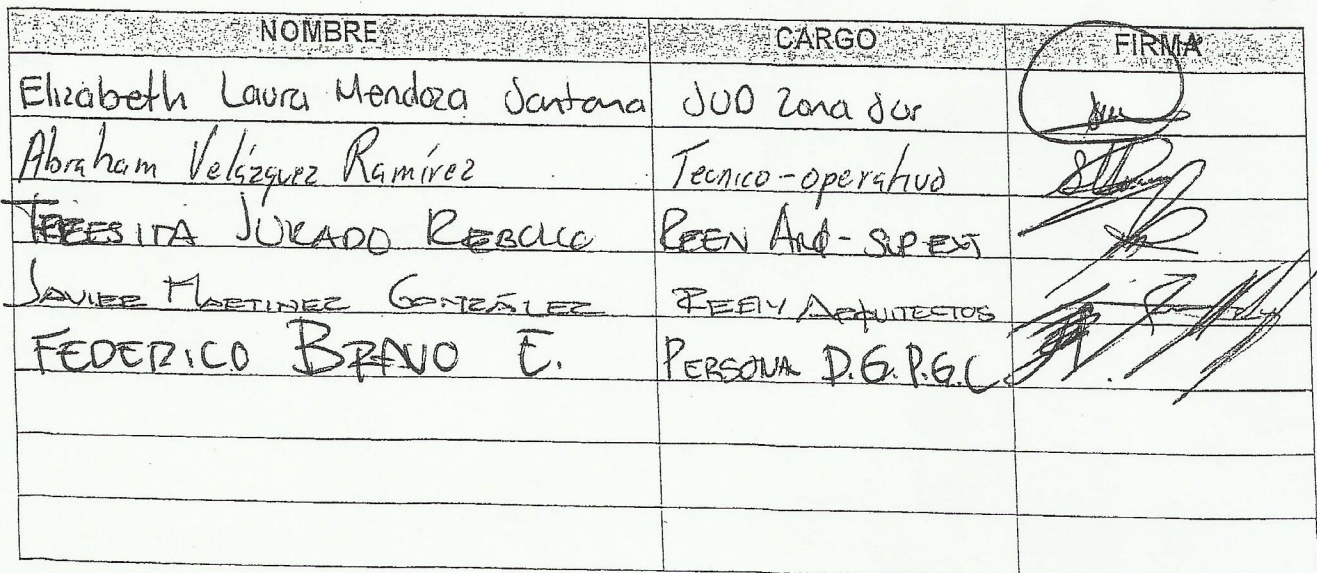 NOMBRE CARGO FIRMA
Elizabeth Laura Mendoza Santana JUD Zona Sur
Abraham Velázquez Ramírez Tecnico-operativo
TERESITA JURADO REEN Arq - SUP EXT
JAVIER MARTINEZ GONZÁLEZ REEN ARQUITECTOS
FEDERICO BRAVO E. PERSONA D.G.P.G.C.